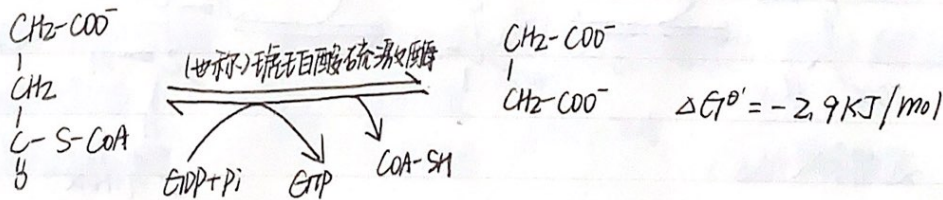 CH₂-COO⁻
CH₂
C-S-CoA
O
(也称)琥珀酸硫激酶
GDP+Pi
GTP
COA-SH
CH₂-COO⁻
CH₂-COO⁻
△G^θ'=-2.9KJ/mol